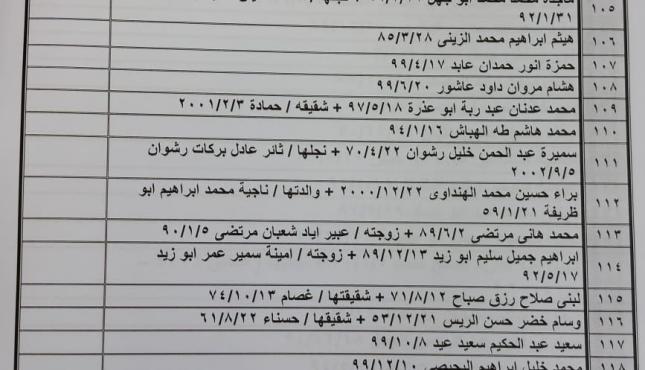 ١٠٥
٩٢/١/٣١
١٠٦ هيثم ابراهيم محمد الزيني ٨٥/٣/٢٨
١٠٧ حمزة انور حمدان عابد ٩٩/٤/١٧
١٠٨ هشام مروان داود عاشور ٩٩/٦/٢٠
١٠٩ محمد عدنان عبد ربة ابو عذرة ٩٧/٥/١٨ + شقيقه / حمادة ٢٠٠١/٢/٣
١١٠ محمد هاشم طه الهباش ٩٤/١/١٦
١١١ سميرة عبد الحمن خليل رشوان ٧٠/٤/٢٢ + نجلها / ثائر عادل بركات رشوان
٢٠٠٢/٩/٥
١١٢ براء حسين محمد الهنداوى ٢٠٠٠/١٢/٢٢ + والدتها / ناجية محمد ابراهيم ابو
ظريفة ٥٩/١/٢١
١١٣ محمد هانى مرتضى ٨٩/٦/٢ + زوجته / عبير اياد شعبان مرتضى ٩٠/١/٥
١١٤ ابراهيم جميل سليم ابو زيد ٨٩/١٢/١٣ + زوجته / امينة سمير عمر ابو زيد
٩٢/٥/١٧
١١٥ لبنى صلاح رزق صباح ٧١/٨/١٢ + شقيقتها / غصام ٧٤/١٠/١٣
١١٦ وسام خضر حسن الريس ٥٣/١٢/٢١ + شقيقها / حسناء ٦١/٨/٢٢
١١٧ سعيد عبد الحكيم سعيد عيد ٩٩/١٠/٨
١١٨ محمد خليل ابراهيم اليحيصي ٩٩/١٢/١٠